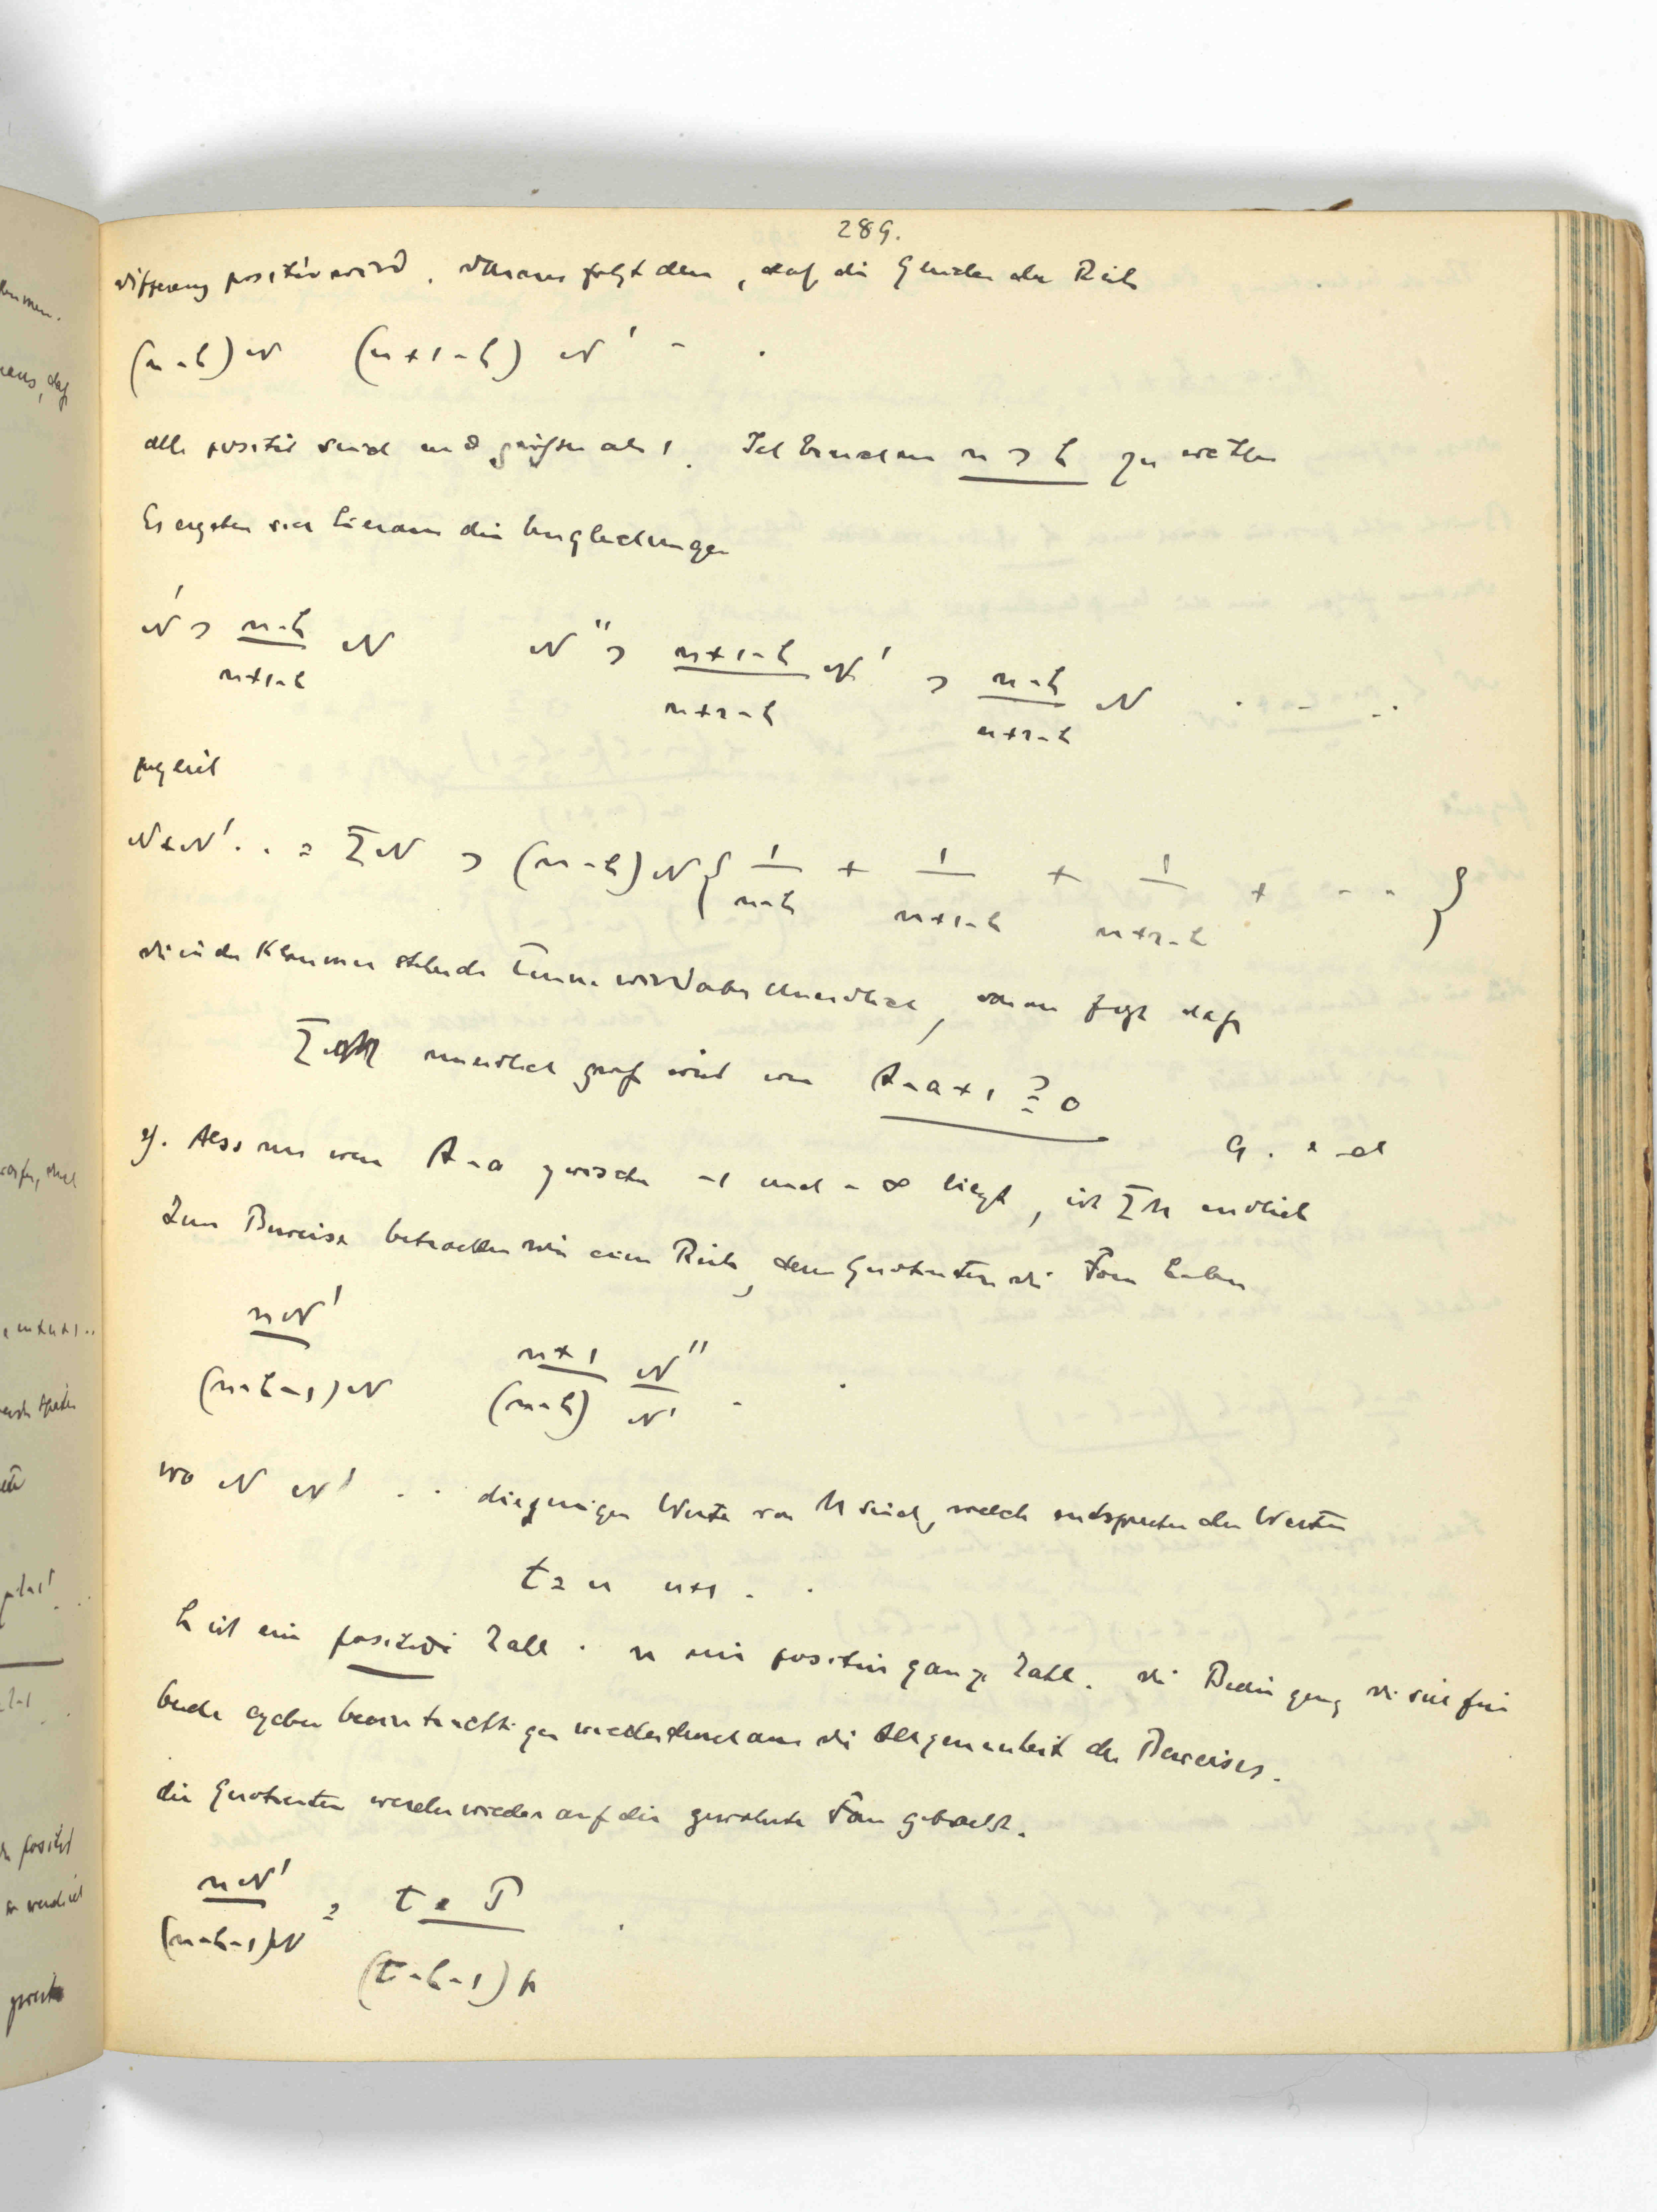 289.
Differenz positiv wird. Daraus folgt denn, daß die Glieder der Reihe
(n-h)N (n+1-h) N' - .
alle positiv sind und größer als 1. Ich brauche nur n > h zu wählen
Es ergeben sich hieraus die Ungleichungen
N' > \frac{n-h}{n+1-h} N N'' > \frac{n+1-h}{n+2-h} N' > \frac{n-h}{n+2-h} N . - - .
folglich
N+N' . . = ΣN > (n-h)N { \frac{1}{n-h} + \frac{1}{n+1-h} + \frac{1}{n+2-h} + - - }
die in der Klammer stehende Summe wird aber unendlich, daraus folgt daß
Σ unendlich groß wird wenn A-a+1 ≧ 0
q. e. d
Also nur wenn A-a zwischen -1 und -∞ liegt, ist Σu endlich
Zum Beweise betrachten wir eine Reihe, deren Quotienten die Form haben
\frac{nN'}{(n-h-1)N} \frac{n+1}{(n-h)} \frac{N''}{N'} - .
wo N N' . . diejenigen Werte von u sind, welche entsprechen den Werten
t = n n+1 . .
h ist eine positive Zahl . n eine positive ganze Zahl. Die Bedingung die sich für
beide ergeben beeinträchtigen wieder durchaus die Allgemeinheit des Beweises.
die Quotienten werden wieder auf die gewohnte Form gebracht.
\frac{nN'}{(n-h-1)N} = \frac{t P}{(t-h-1)p} .